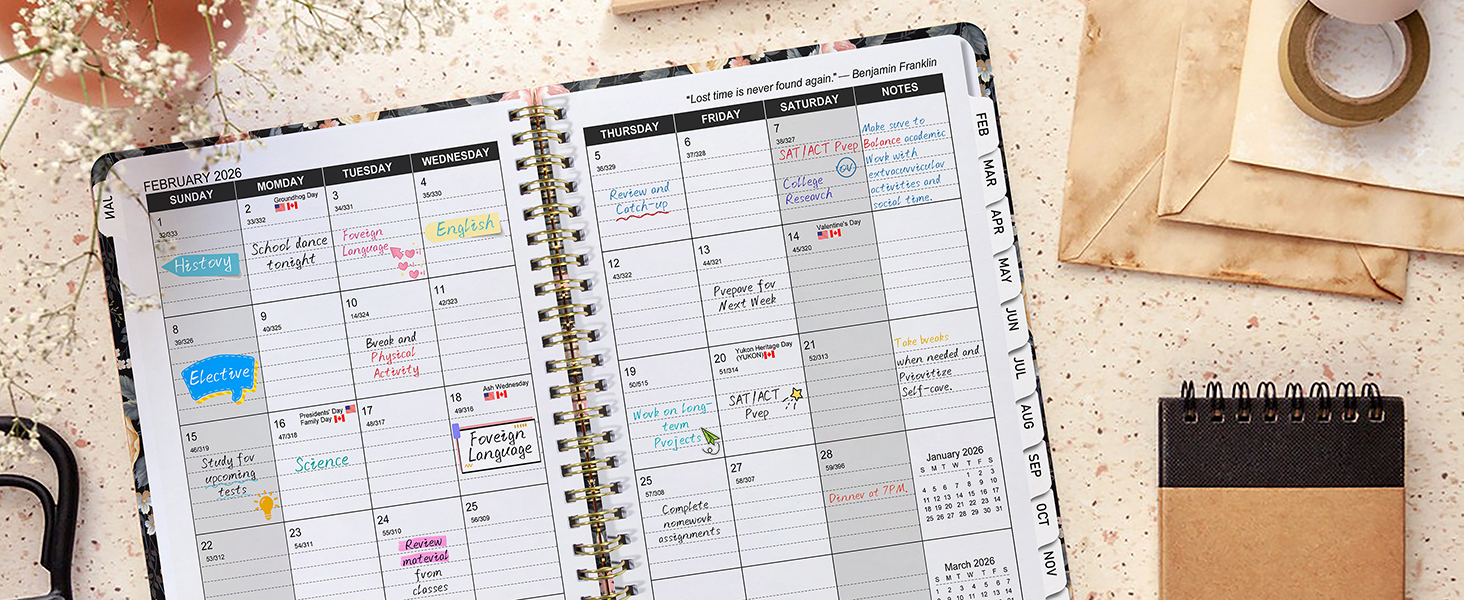 FEBRUARY 2026
SUNDAY
MOMDAY
TUESDAY
WEDNESDAY
1
32/333
History
2
Groundhog Day
33/332
School dance
tonight
3
34/331
Foreign
Language
4
35/330
English
8
39/326
Elective
9
40/325
10
14/324
Break and
Physical
Activity
11
42/323
15
46/319
Study for
upcoming
tests
16
Presidents' Day
Family Day
47/318
Science
17
48/317
18
Ash Wednesday
49/316
Foreign
Language
22
53/312
23
54/311
24
55/310
Review
material
from
classes
25
56/309
"Lost time is never found again."— Benjamin Franklin
THURSDAY
FRIDAY
SATURDAY
NOTES
5
38/329
Review and
Catch-up
6
37/328
7
38/327
SAT/ACT Prep
or
College
Research
Make sure to
Balance academic
Work with
extracurricular
activities and
social time.
12
43/322
13
44/321
Prepare for
Next Week
14
Valentine's Day
45/320
19
50/515
Work on long-
term
Projects
20
Yukon Heritage Day
(YUKON)
51/314
SAT/ACT
Prep
21
52/313
Take breaks
when needed and
Prioritize
Self-care.
25
57/308
Complete
homework
assignments
27
58/307
28
59/396
Dinner at 7PM.
January 2026
S M T W T F S
1 2 3
4 5 6 7 8 9 10
11 12 13 14 15 16 17
18 19 20 21 22 23 24
25 26 27 28 29 30 31
March 2026
S M T W T F S
1 2 3 4 5 6 7
JAN
FEB
MAR
APR
MAY
JUN
JUL
AUG
SEP
OCT
NOV